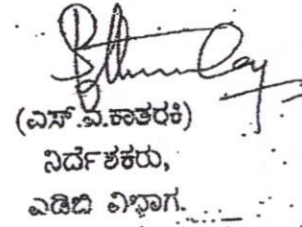 (ಎಸ್.ಎ.ಕಾತರಕಿ)
ನಿರ್ದೇಶಕರು,
ಎಡಿಬಿ ವಿಭಾಗ.